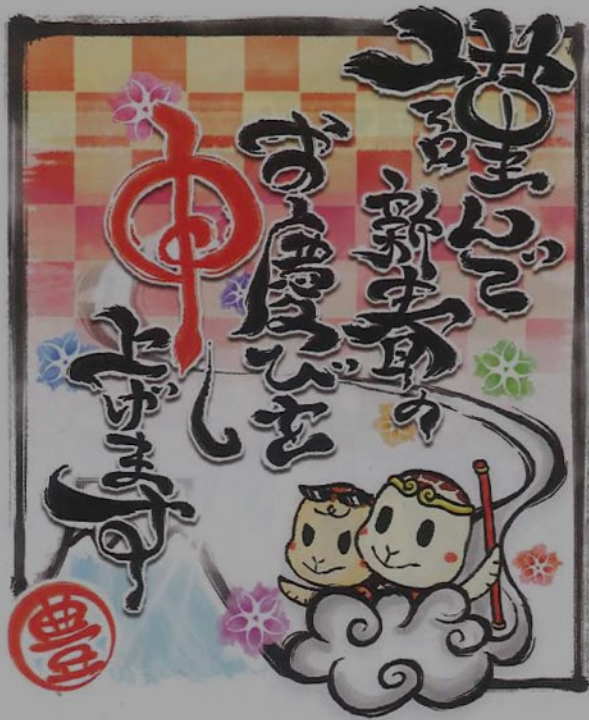 謹んで
新春の
お慶びを
申し
上げます
豊